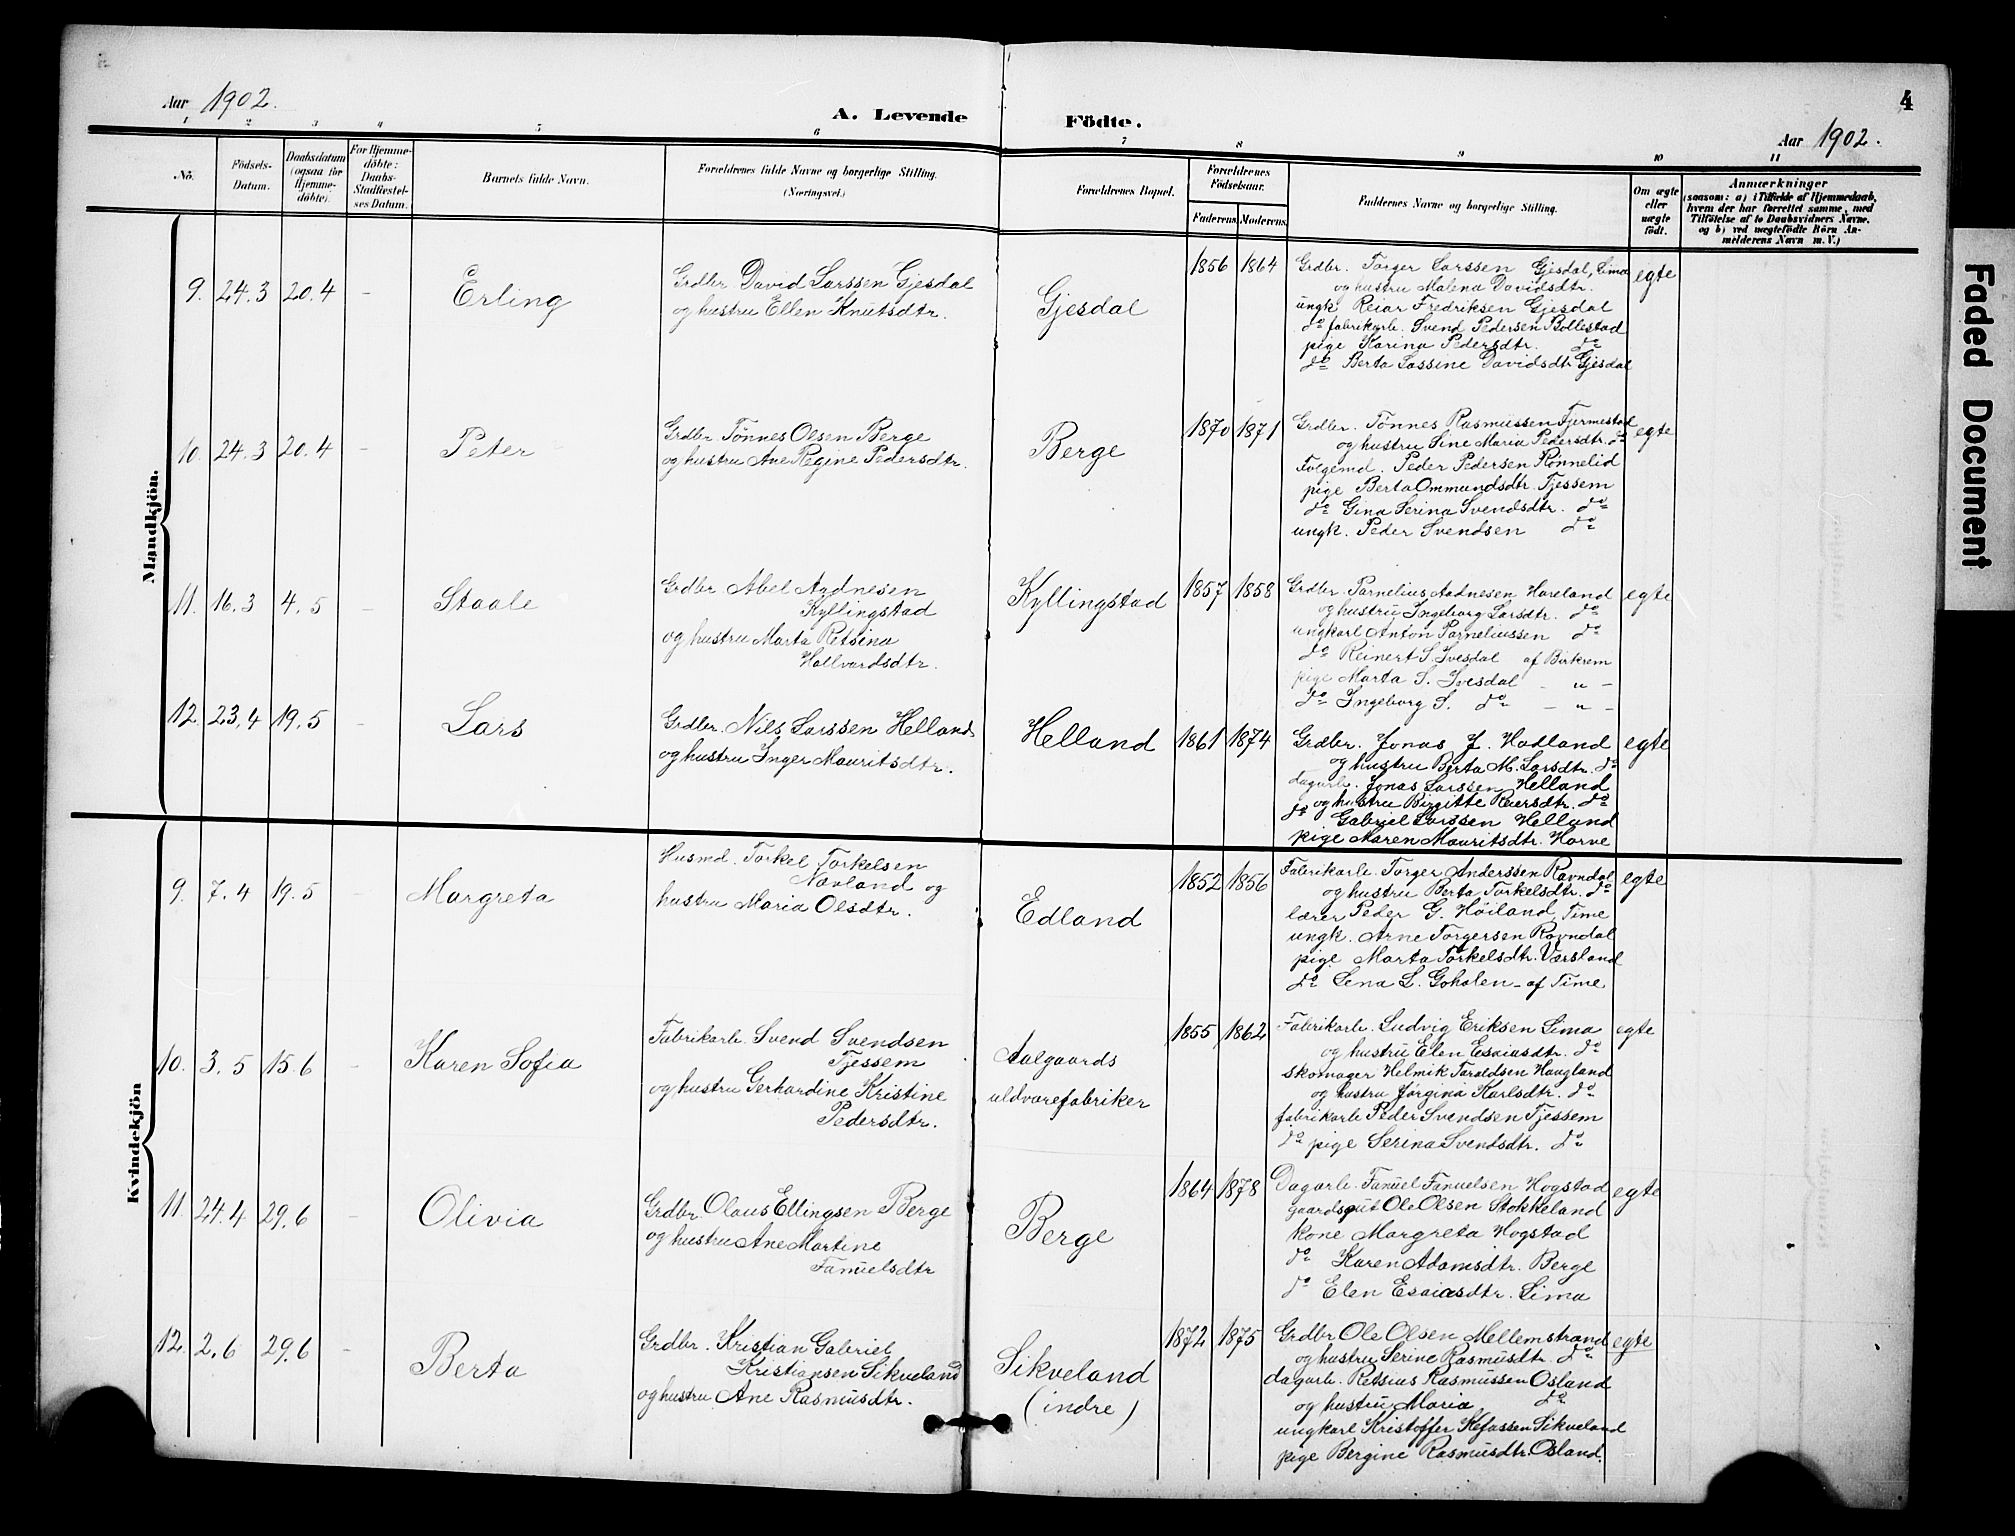 Aar 1902.
A. Levende Födte.
4
Aar 1902.
1 2 3 4 5 6 7 8 9 10 11
No.
Födsels-Datum.
Daabsdatum (ogsaa for Hjemme-döbte).
For Hjemme-döbte: Daabs-Stadfæstel-ses Datum.
Barnets fulde Navn.
Forældrenes fulde Navne og borgerlige Stilling. (Næringsvei.)
Forældrenes Bopæl.
Forældrenes Födselsaar.
Faderens Moderens
Faddernes Navne og borgerlige Stilling.
Om ægte eller uægte födt.
Anmærkninger
(saasom: a) i Tilfælde af Hjemmedaab,
hvem der har forrettet samme, med
Tilföielse af to Daabsvidners Navne.
og b) ved uægtefödte Börn An-
melderens Navn m. V.)
Mandkjön.
9. 24.3 20.4 – Erling
Grdbr. David Larssen Gjesdal
og hustru Ellen Knutsdtr.
Gjesdal
1856 1864
Grdbr. Torger Larssen Gjesdal, Lima
og hustru Malena Davidsdtr.
ungk. Reiar Fredriksen Gjesdal
do fabrikarb. Svend Pedersen Bollestad
pige Karina Pedersdtr. do
do Berta Lassine Davidsdtr Gjesdal
egte
10. 24.3 20.4 – Peter
Grdbr. Tönnes Olsen Berge
og hustru Ane Regine Pedersdtr.
Berge
1870 1871
Grdbr. Tönnes Rasmussen Fjermestad
og hustru Sine Maria Pedersdtr. do
Folgemd. Peder Pedersen Rönnelid
pige Berta Ommundsdtr. Tjessem
do Gina Serina Svendsdtr. do
ungk. Peder Svendsen do
egte
11. 16.3 4.5 – Staale
Grdbr. Abel Aadnesen
Kyllingstad
og hustru Marta Retsina
Hallvardsdtr.
Kyllingstad
1857 1858
Grdbr. Parnelius Aadnesen Haveland
og hustru Ingeborg Larsdtr. do
ungkarl Anton Parneliussen do
do Reinert S. Ivesdal af Birkrem
pige Marta S. Ivesdal – " –
do Ingeborg S. do – " –
egte
12. 23.4 19.5 – Lars
Grdbr. Nils Larssen Helland
og hustru Inger Mauritsdtr.
Helland
1861 1874
Grdbr. Jonas J. Hadland
og hustru Berta M. Larsdtr. do
dagarb. Jonas Larssen Helland
og hustru Birgitte Reiersdtr. do
do Gabriel Larssen Helland
pige Maren Mauritsdtr. Horve
egte
Kvindekjön
9. 7.4 19.5 – Margreta
Husmd. Torkel Torkelsen
Nævland og
hustru Maria Olsdtr.
Edland
1852 1856
Fabrikarb. Torger Anderssen Ravndal
og hustru Berta Torkelsdtr. do
lærer Peder G. Höiland, Time
ungk. Arne Torgersen Ravndal
pige Marta Torkelsdtr. Værsland
do Lena L. Gohalen – af Time
egte
10. 3.5 15.6 – Karen Sofia
Fabrikarb. Svend Svendsen
Tjessem
og hustru Gerhardine Kristine
Pedersdtr.
Aalgaards
uldvarefabriker
1855 1862
Fabrikarb. Ludvig Eriksen Lima
og hustru Elen Esaiasdtr. do
skomager Helmik Taraldsen Haugland
og hustru Jörgina Karlsdtr. do
fabrikarb. Peder Svendsen Tjessem
do pige Serina Svendsdtr. do
egte
11. 24.4 29.6 – Olivia
Grdbr. Olaus Ellingsen Berge
og hustru Ane Martine
Fanuelsdtr
Berge
1864 1878
Dagarb. Fanuel Fanuelsen Hogstad
gaardsgut Ole Olsen Stokkeland
kone Margreta Hogstad
do Karen Adamsdtr. Berge
do Elen Esaiasdtr. Lima
egte
12. 2.6 29.6 – Berta
Grdbr. Kristian Gabriel
Kristiansen Sikveland
og hustru Ane Rasmusdtr.
Sikveland
(indre)
1872 1875
Grdbr Ole Olsen Mellemstrand
og hustru Serine Rasmusdtr. do
dagarb. Retsius Rasmussen Osland
og hustru Maria do
ungkarl Kristoffer Kefassen Sikveland
pige Bergine Rasmusdtr. Osland.
egte
Faded Document